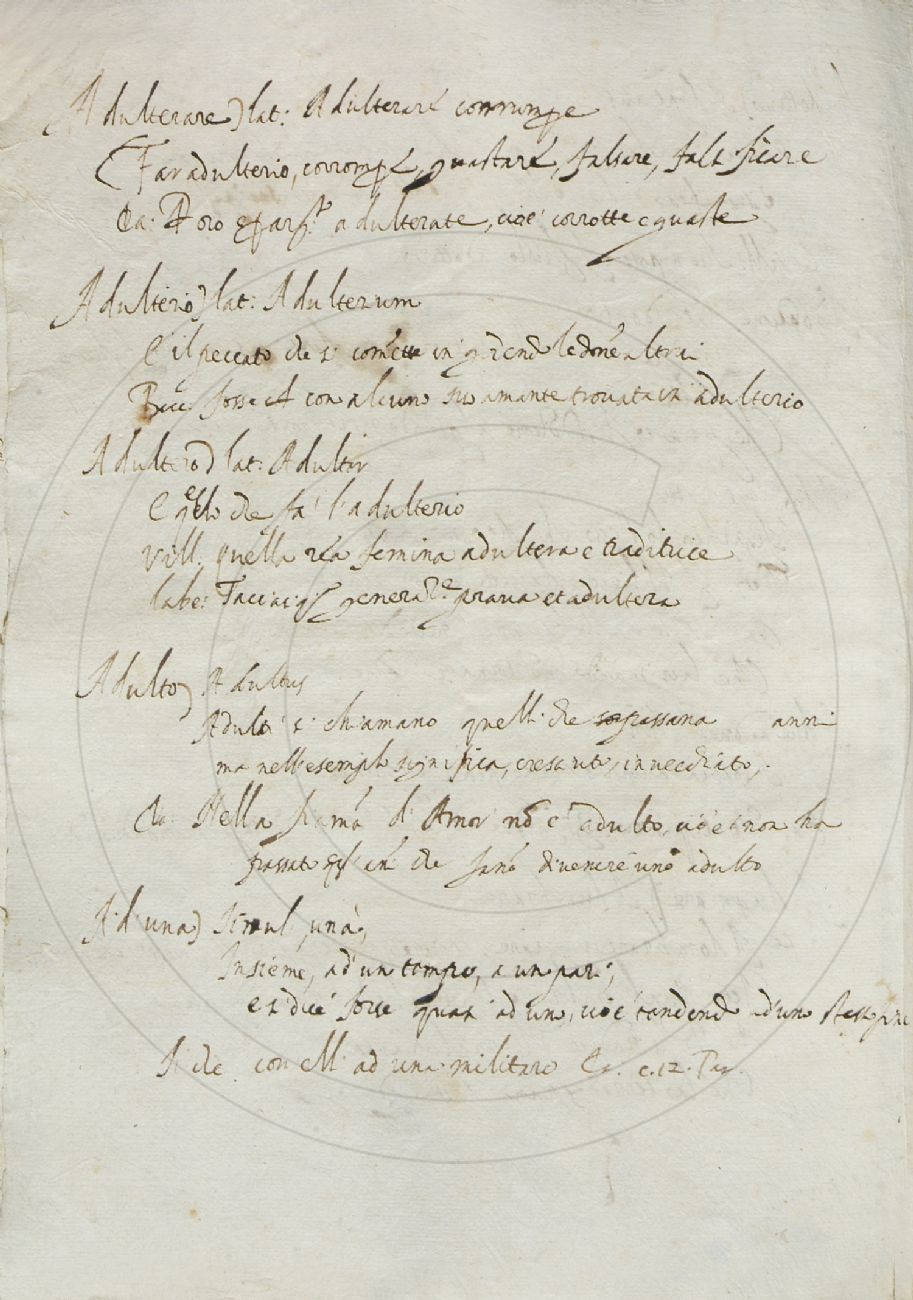 Adulterare) lat: Adulterare corrumpe
Far adulterio, corromp', guastare, falsare, falsificare
Da: P oro e p ar.to adulterate, cioè corrotte e guaste
Adulterio) lat: Adulterium
È il peccato che si comette in prendend le done altrui
Bocc. fosse il con alcuno suo amante trovata in adulterio
Adultero) lat: Adulter
È quello che fa l'adulterio
Vill. quella rea femina adultera e traditrice
labe: genera.ne prava et adultera
Adulto) Adultus
Adulti si chiamano quelli che sorpassano anni
ma nell'esempio significa, cresciuto, invecchiato,
Da: Nella fiama d'Amor nõ è adulto, cioè non ha
passato che fano divenire uno adulto
Ad una) Simul, unà,
Insieme, ad un tempo, a un pari,
e si dice forse quasi ad uno, cioè tendend ad uno stess fine
Si che con elli ad una militaro Da. c. 12. Par.